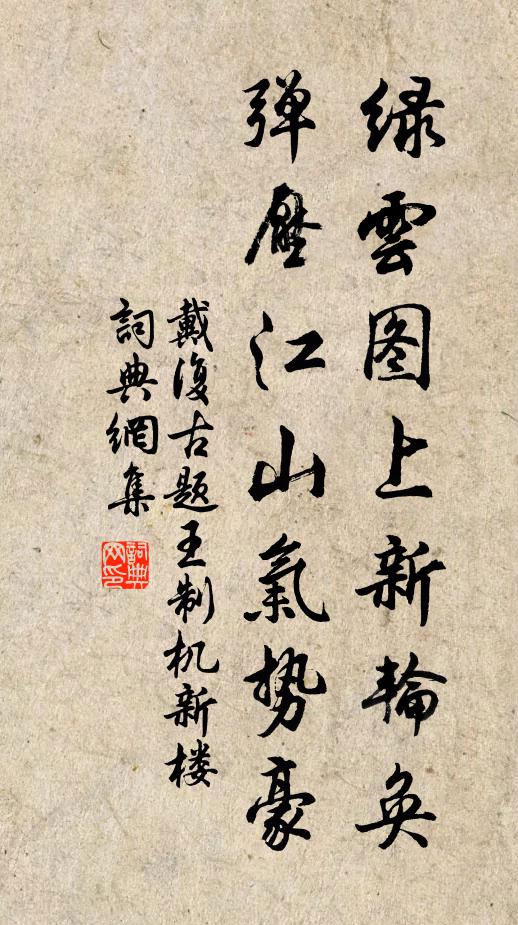 绿雲图上新輪奂
弹壓江山氣势豪
戴復古题王制机新楼
詞典網集
詞典网印